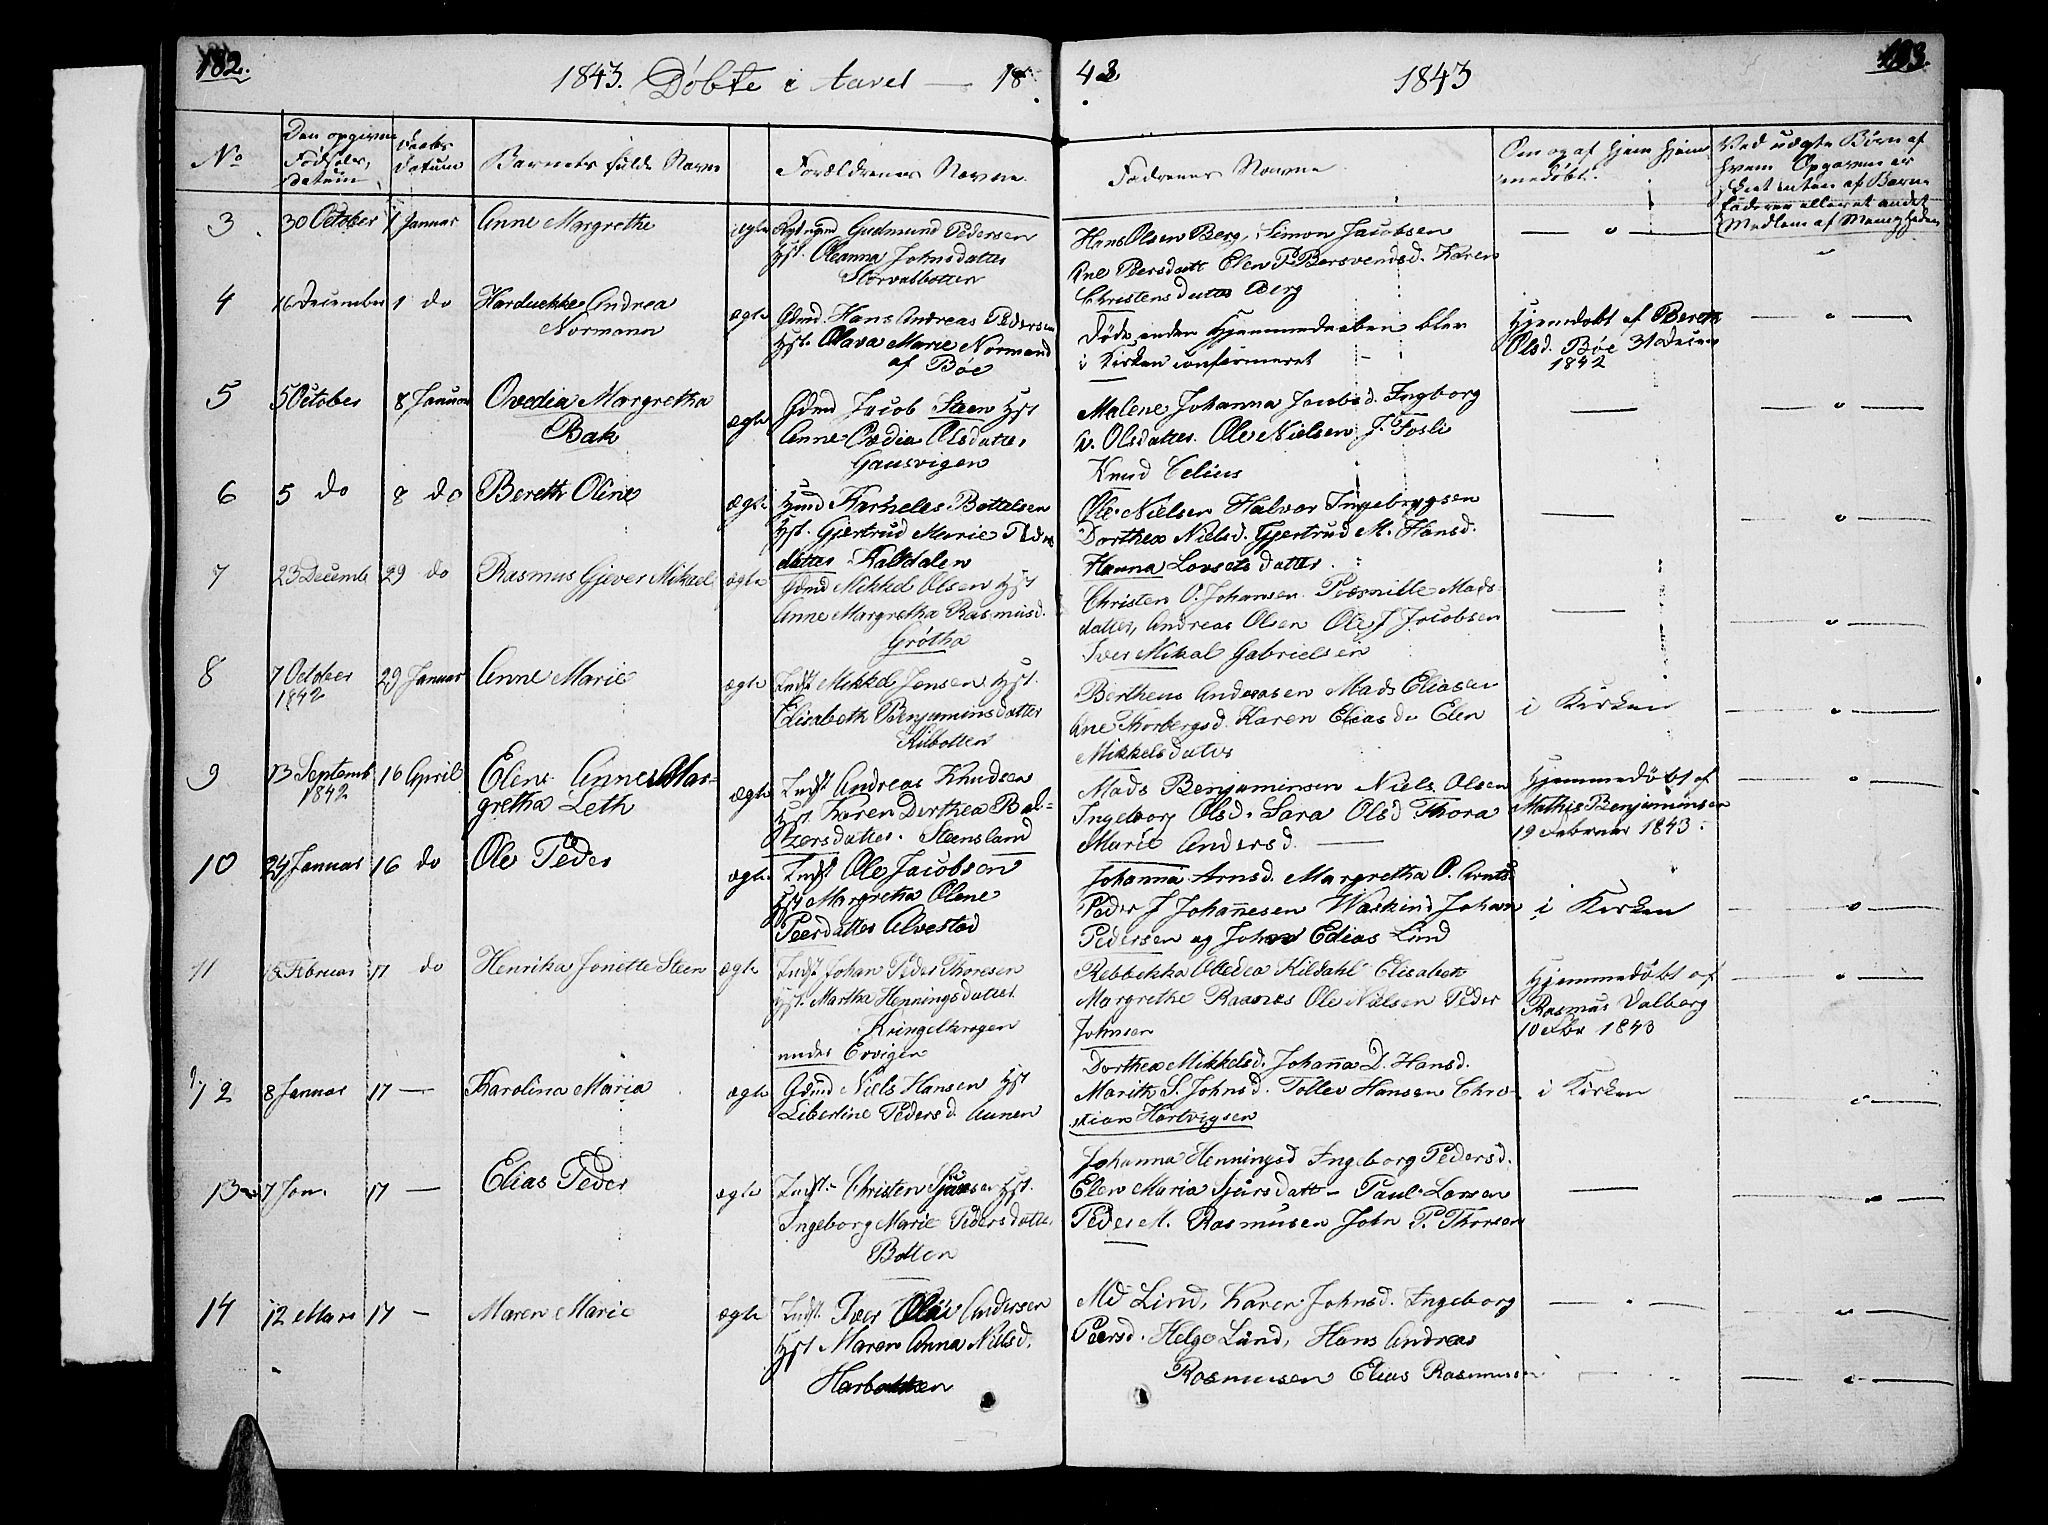 182.
1843. Døbte i Aaret — 18
43
1843
183.
No
Den opgivne Fødsels, datum
Daabs Datum
Barnets fulde Navn
Forældrenes Navne
Fadrenes Navne
Om og af hjem hjem
medøbt.
Ved uægte Børn af
hvem Opgaven er
skeet enten af Barne
faderen eller et andet
Medlem af Menigheden
3. 30 October 1 Januar Anne Margrethe ægte Gudmund Pedersen
Hst. Oleanna Johnsdatter
Storvasbotten
Hans Olsen Berg, Simon Jacobsen
Ane Peersdatt Elen P. Bersvendsd. Karen
Christensdatter Berg
4 16 December 1 do Harduekke Andrea
Normann
ægte Gdmd. Hans Andreas Pedersen
Hst. Olava Marie Normand
af Bøe
Døde, anden Hjemmedaaben blev
i Kirken confirmeret —
Hjemdøbt af Bereth
Olsd. Bøe 31 Decem
1842
5 5 October 8 Januar Ovedia Margretha
Bak
ægte Gdmd Jacob Steen Hst
Anne Ovedia Olsdatter
Gausvigen
Malene Johanna Jacobsd. Ingborg
A. Olsdatter. Ole Nielsen J. Fosli
Knud Celius
6 5 do 8 do Bereth Oline ægte Hmd Karneles Bottelsen
Hst. Gjertrud Marie Peders
datter Kaltdalen
Ole Nielsen Halvor Ingebrygsen
Dorthea Nielsd. Gjertrud M. Hansd.
Hanna Lorsetsdatter.
7 23 Decemb 29 do Rasmus Gjever Mikael ægte Gdmd Mikkel Olsen Hst
Anne Margretha Rasmusd.
Grøtha
Christen O. Johansen. Pernille Mads-
datter, Andreas Olsen Ole J Jacobsen
Iver Mikal Gabrielsen
8 7 October
1842
29 Januar Anne Marie ægte Indst Mikkel Jensen Hst.
Elisabeth Benjaminsdatter
Kilbotten
Bertheus Andreasen Mads Eliasen
Ane Thorbergsd. Karen Eliasd. Elen
Mikkelsdatter
i Kirken
9 13 Septemb
1842
16 April Eline Anne Mar-
gretha Leth
ægte Indst Andreas Knudsen
Hst Karen Dorthea Bal-
tzersdatter. Steensland
Mads Benjaminsen Niels Olsen
Ingeborg Olsd. Sara Olsd Thora
Marie Andersd. —
Hjemmedøbt af
Mathis Benjaminsen
19 Februar 1843.
10 24 Januar 16 do Ole Peder ægte Indst Ole Jacobsen
Hst Margretha Olene
Peersdatter Alvestad
Johanna Arnsd. Margretha O. Arnts
Peder J Johannesen Johan
Pedersen og Johan Edias Lind
i Kirken
11 18 Februar 17 do Henrika Jonette Steen ægte Indst Johan Peder Thoresen
Hst. Martha Henningsdatter
Kringelkrogen
under Ervigen
Rebbekka Ottedea Kildahl Elisabeth
Margrethe Raanes Ole Nielsen Peder
Johnsen
Hjemmedøbt af
Rasmus Valberg
10 Fbr 1843
12 8 Januar 17 — Karolina Maria ægte Gdmd Niels Hansen Hst
Libertine Pedersd. Aunen
Dorthea Mikkelsd. Johanna D. Hansd.
Marith S. Johnsd. Tollev Hansen Chri-
stian Hartvigsen
i Kirken
13 7 Jan. 17 — Elias Peder ægte Indst. Christen Sjursen Hst.
Ingeborg Marie Pedersdatter
Botten
Johanna Henningsd Ingeborg Pedersd.
Elen Maria Sjursdatt — Paul Larsen
Peder M. Rasmusen John P. Thorsen
14 12 Mars 17 — Maren Marie ægte Indst. Iver Olai Andersen
Hst Maren Anna Nielsd.
Harbakken
Md Lind, Karen Johnsd. Ingeborg
Peersd. Helge Lind, Hans Andreas
Rasmusen Elias Rasmusen